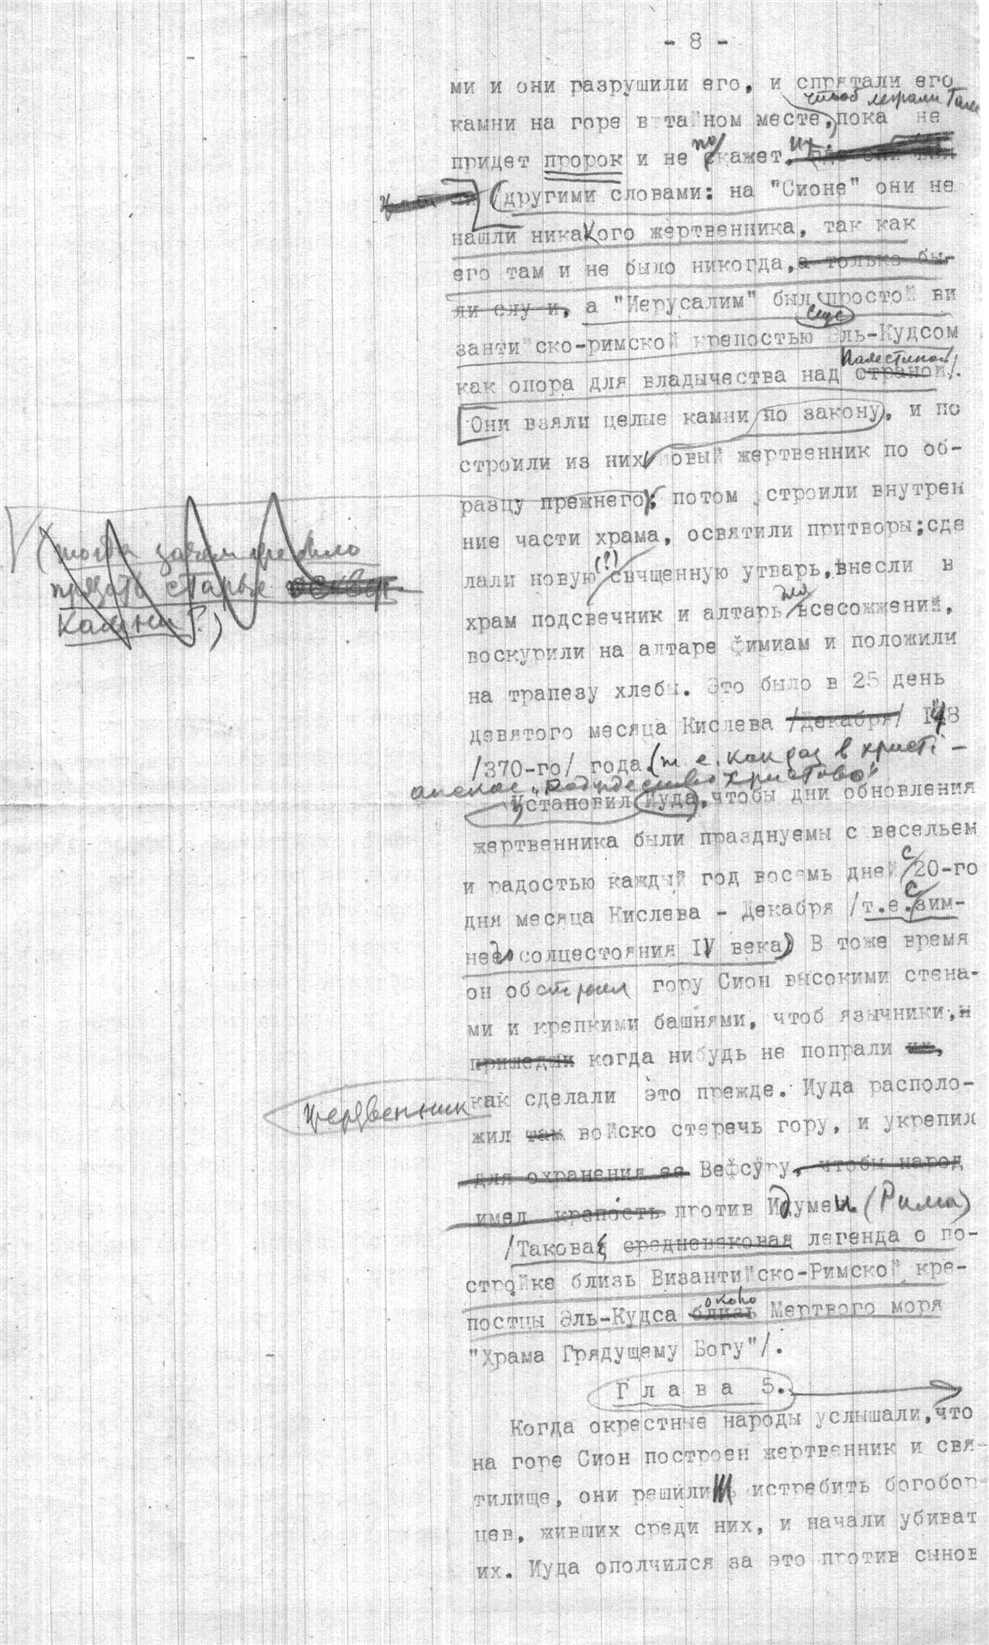 - 8 -
ми и они разрушили его, и спрятали его
чтоб лежали там
камни на горе в тайном месте, пока не
придет пророк и не покажет их.
(другими словами: на "Сионе" они не
нашли никакого жертвенника, так как
его там и не было никогда, а только бы-
ли слухи, а "Иерусалим" был простой ви
еще
зантийско-римской крепостью Эль-Кудсом
Палестиной
как опора для владычества над страной/.
Они взяли целые камни по закону, и по
строили из них новый жертвенник по об-
разцу прежнего; потом строили внутрен
ние части храма, освятили притворы; сде
(тогда зачем
прятать старые
камни?)
лали новую (?) свчщенную утварь, внесли в
храм подсвечник и алтарь для всесожжений,
воскурили на алтаре фимиам и положили
на трапезу хлебы. Это было в 25 день
девятого месяца Кислева /декабря/ 148
/370-го/ года (т.е. как раз в христi-
анское "Рождество Христово"
Установил Иуда, чтобы дни обновления
жертвенника были празднуемы с весельем
и радостью каждый год восемь дней с 20-го
дня месяца Кислева - Декабря /т.е. с зим-
него солцестояния IV века) В тоже время
он обстроил гору Сион высокими стена-
ми и крепкими башнями, чтоб язычники, и
пришедши когда нибудь не попрали их,
жертвенник
как сделали это прежде. Иуда располо-
жил там войско стеречь гору, и укрепил
для охранения ее Вефсуру, чтобы народ
имел крепость против Идумеи (Рима)
/Такова средневековая легенда о по-
стройке близь Византийско-Римской кре-
постцы Эль-Кудса близь около Мертвого моря
"Храма Грядущему Богу"/.
Глава 5.
Когда окрестные народы услышали, что
на горе Сион построен жертвенник и свя-
тилище, они решили истребить богобор-
цев, живших среди них, и начали убиват
их. Иуда ополчился за это против сынов